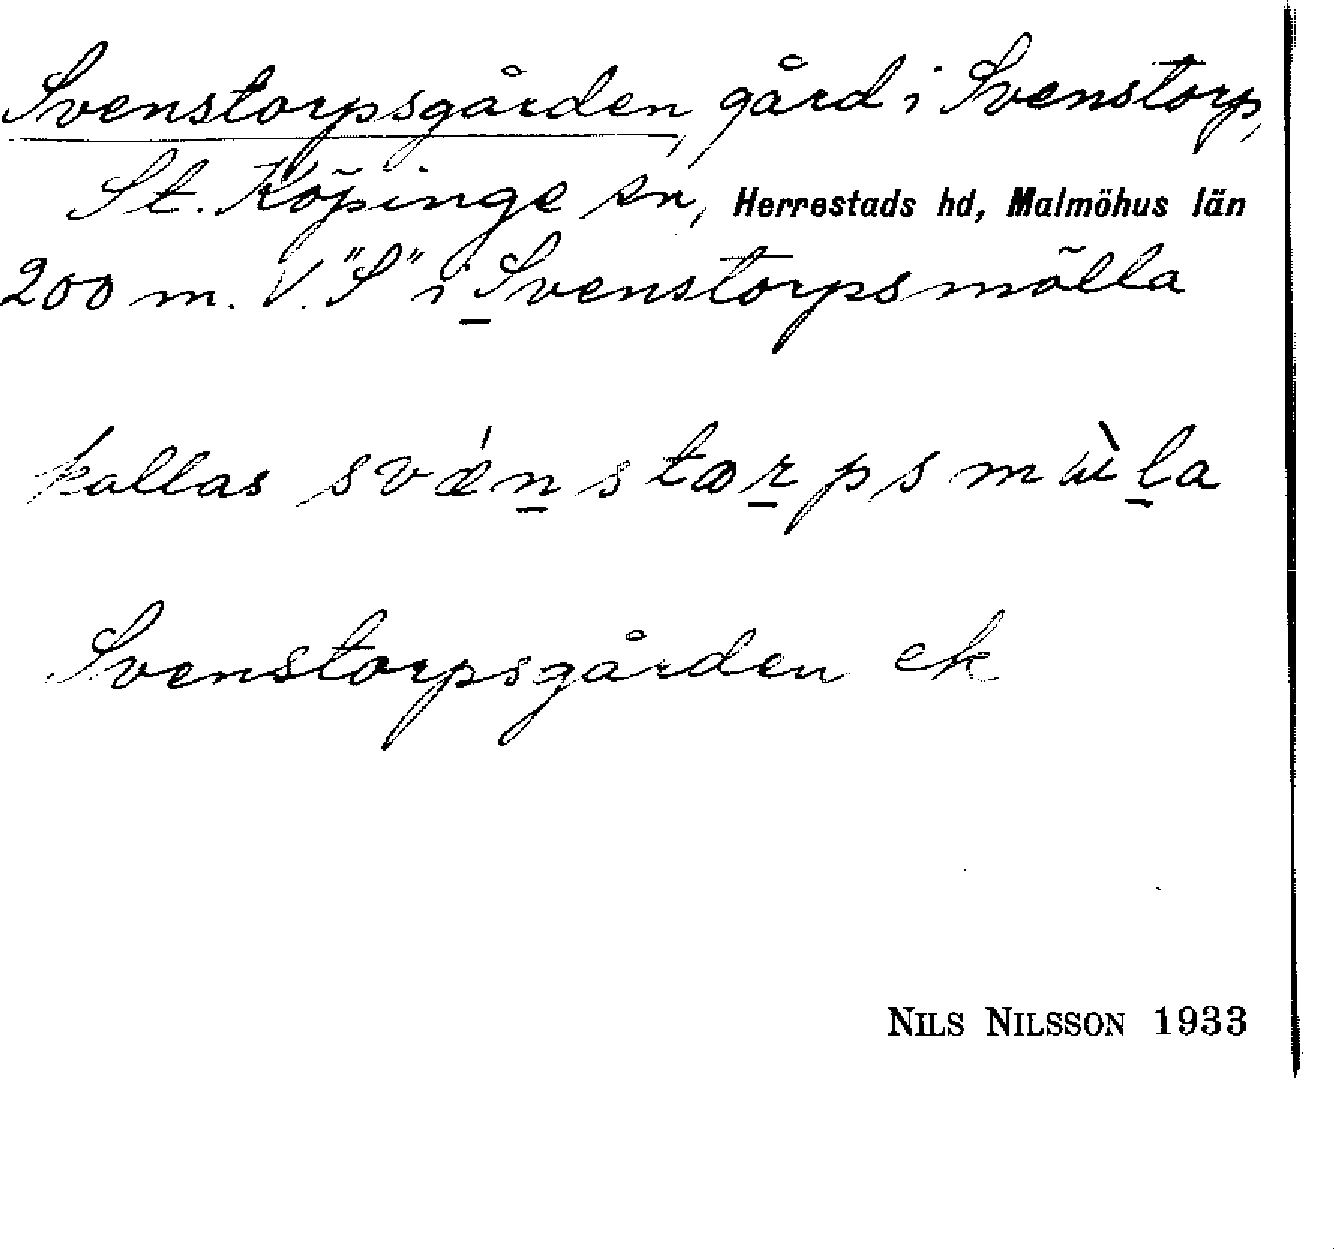 Svenstorpsgården, gård i Svenstorp,
St. Köpinge sn, Herrestads hd, Malmöhus län
200 m. V. "S" i Svenstorpsmölla
kallas svǽn̲stꝏr̲psmɯ̀l̲a
Svenstorpsgården ek
NILS NILSSON 1933